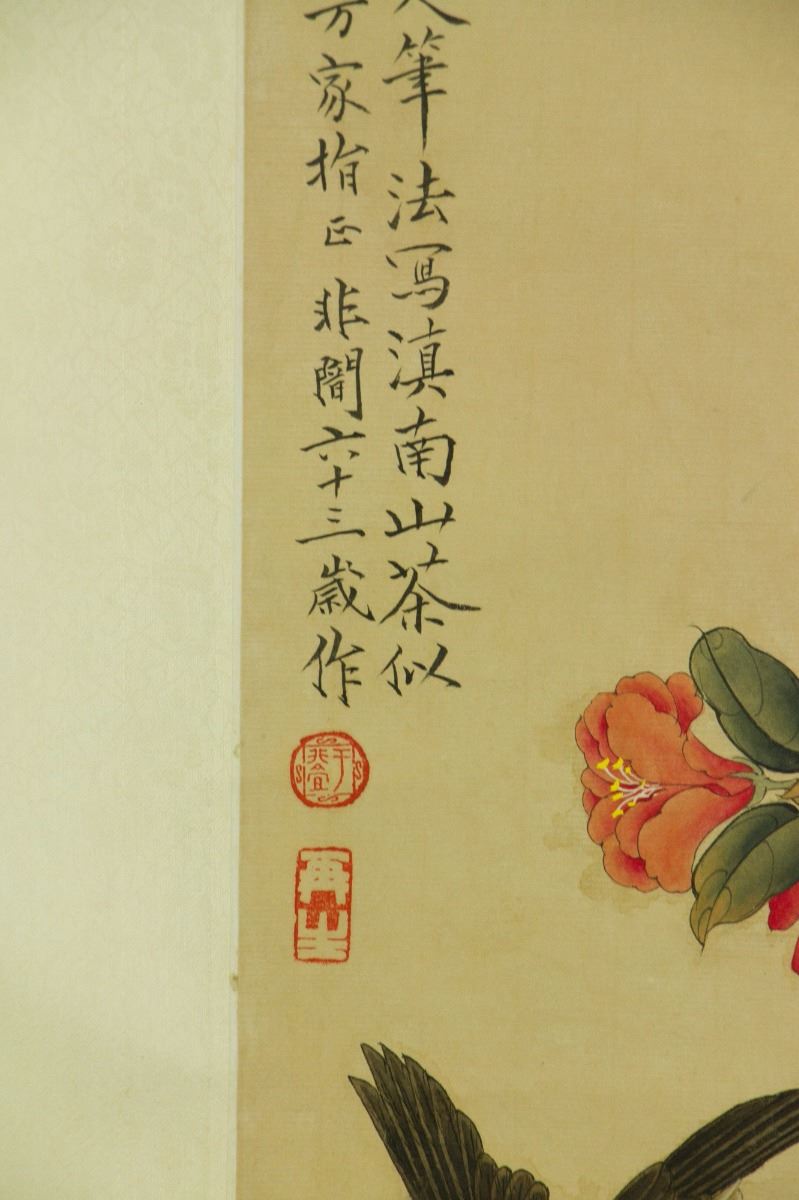 筆法寫滇南山茶似
方家指正非闇六十三歲作